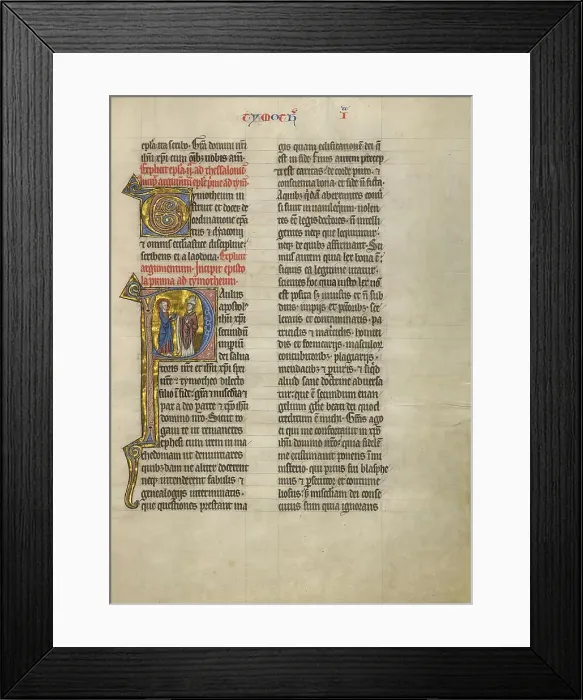 tymoth' I
epl'a ita scribo. Gr'a domini nri
ihu xpi cum omib; uobis am.
Explicit epl'a ij ad thessaloni
Tymotheum in
struit et docet de
ordinatione epa
tus & dyaconij
& omnis ecclesiastice discipline.
scribens ei a laodicia. Explicit
argumentum. incipit episto
la prima ad tymotheum.
Paulus
apostol'
ihu xpi
secundum
impium
dei salua
toris nri et ihu xpi spei
nre. tymotheo dilecto
filio i fide. gra misericordia et
pax a deo patre & xpo ihu
domino nro. Sicut ro
gaui te ut remaneres
ephesi cum irem in ma
chedoniam ut denunciares
quibusdam ne aliter docerent
neq; intenderent fabulis &
genealogijs interminatis.
que questiones prestant ma
gis quam edificationem dei q
est in fide. Finis autem precep
ti est caritas de corde puro. &
conscientia bona. et fide n ficta.
A quib; qdam aberrantes conu
si sunt in uaniloquium. uolen
tes ee legis doctores. n intelli
gentes neq; que loquuntur.
neq; de quib; affirmant. Sci
mus autem quia lex bona e.
siquis ea legitime utatur.
scientes hoc quia iusto lex no
est posita s; iniustis et n sub
ditis. impijs et pctorib;. sce
leratis et contaminatis. pa
tricidis & matricidis. homici
dis et fornicarijs. masculor
concubitorib;. plagiarijs.
mendacib; & piuris. & siqd
aliud sane doctrine aduersa
tur. que e secundum euan
gelium glie beati dei quod
creditum e michi. Gras ago
ei qui me confortauit in xpo
ihu domino nro. quia fidele
me existimauit ponens i mi
nisterio. qui prius fui blasphe
mus & psecutor et contume
liosus. s; misericordiam dei conse
cutus sum quia ignorans